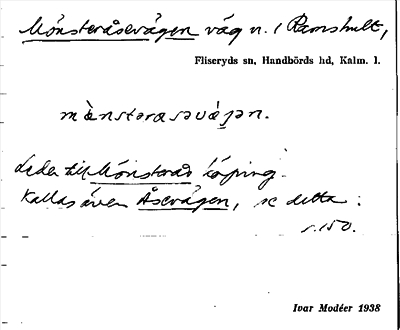 Mönsteråsevägen väg n. i Ramshult,
Fliseryds sn, Handbörds hd, Kalm. l.
mànsterasəvä́ɟən.
Leder till Mönsterås köping.
Kallas även Åsevägen, se detta.
s. 150.
Ivar Modéer 1938